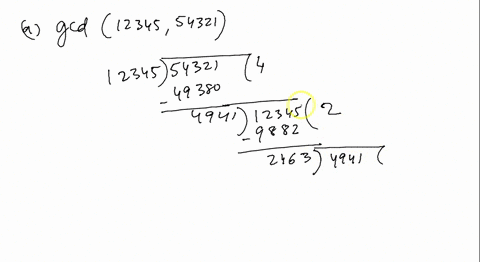 (a) gcd (12345, 54321)
12345)54321(4
- 49380
4941)12345(2
- 9882
2463)4941(